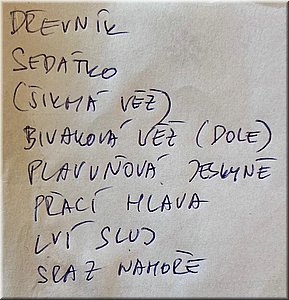 DŘEVNÍK
SEDÁTKO
(ŠIKMÁ VĚZ)
BIVAKOVÁ VĚZ (DOLE)
PLAVUŇOVÁ JESKYNĚ
PTAČÍ HLAVA
LVÍ SLUJ
SRAZ NAHOŘE